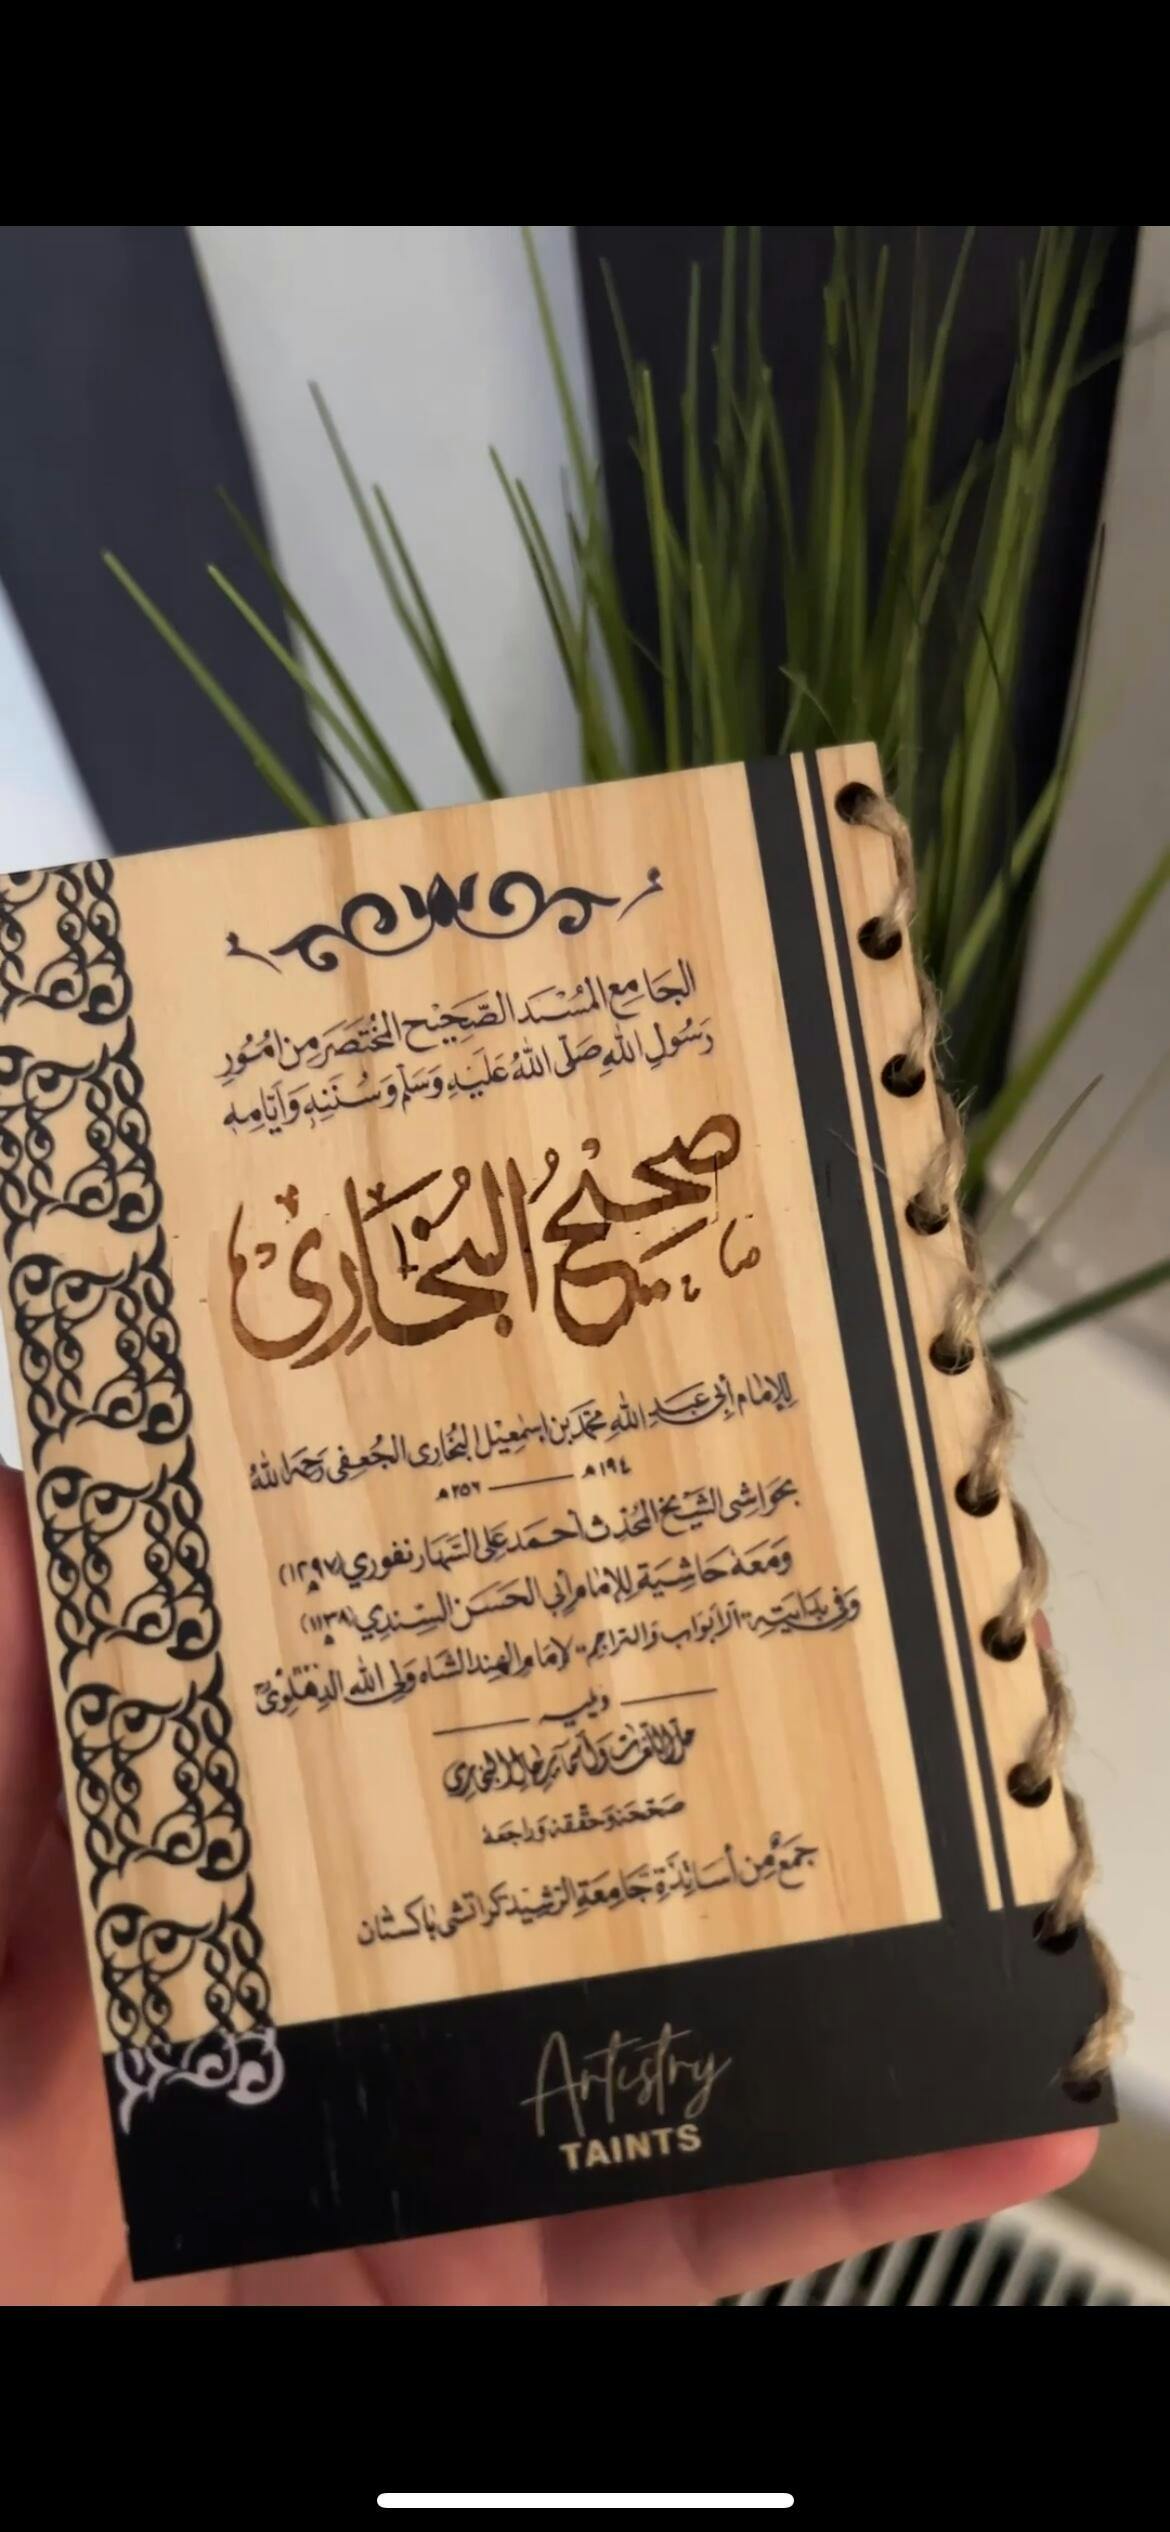 الجَامِع المُسْنَد الصَّحِيْح المُخْتَصَر مِن اُمُوْرِ
رَسُولِ اللهِ صَلَّى اللهُ عَلَيْهِ وَسَلَّم وَسُنَنِهٖ وَاَيَّامِهٖ
صحِيْحُ البُخَارِيْ
لِلإمَام أبِي عَبدِ اللهِ مُحَمَّد بن اِسْمٰعِيْل البُخَاري الجُعفِي رَحِمَهُ اللهُ
١٩٤هـ ــــــ ٢٥٦هـ
بحَوَاشِي الشَّيْخ المُحَدِّث أحمَد عَلِي السَّهَارنفُوري (١٢٩٧هـ)
وَمَعَهٗ حَاشِيَة لِلإمَام أبِي الحَسَن السِّندِي (١١٣٨هـ)
وَفِي بِدَايَتِهٖ "الأبوَاب وَالتراجِم" لإمَام الهِند الشَاه وَلي الله الدِّهْلَوِيْ
وَيَلِيهِ
حَلّ اللُّغَات وَأسْمَاء رِجَال البُخَارِي
صَحَّحَهٗ وَحَقَّقَهٗ وَرَاجَعَهٗ
جَمعٌ مِّن أسَاتِذَةِ جَامِعَةِ الرَّشِيْد كَرَاتشِي بَاكِسْتَان
Artistry
TAINTS